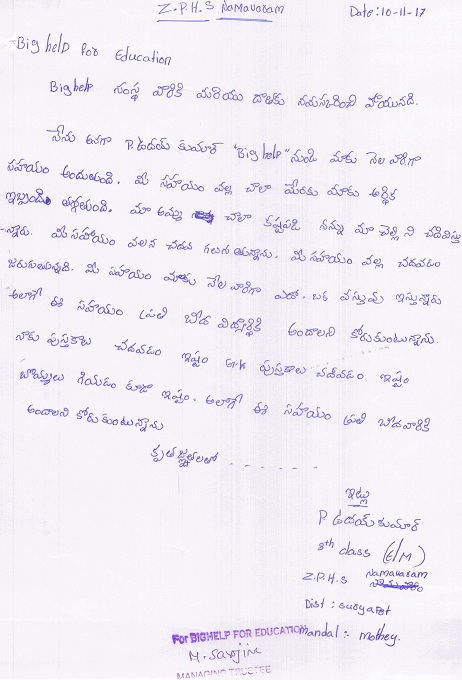 Z.P.H.S Namavaram
Date:10-11-17
Big help for Education
Bighelp సంస్థ వారికి మరియు దాతకు నమస్కరించి వ్రాయునది.
నేను అనగా P.ఉదయ్ కుమార్ "Big help" నుండి మాకు నెల వారిగా
సహాయం అందుతుంది. మీ సహాయం వల్ల చాలా మేరకు మాకు ఆర్థిక
ఇబ్బంది తగ్గుతుంది. మా అమ్మ చాలా కష్టపడి నన్ను మా చెల్లి ని చదివిస్తు
న్నారు. మీ సహాయం వలన చదవ గలుగుతున్నాను. మీ సహాయం వల్ల చదవడం
జరుగుతున్నది. మీ సహాయం మాకు నెల వారిగా ఎదో. ఒక వస్తువు ఇస్తున్నారు
అలాగే ఈ సహాయం ప్రతి బీద విద్యార్థికి అందాలని కోరుకుంటున్నాను.
నాకు పుస్తకాలు చదవడం ఇష్టం G.K పుస్తకాలు చదవడం ఇష్టం
బొమ్మలు గీయడం కూడా ఇష్టం. అలాగే ఈ సహాయం ప్రతి బీదవారికి
అందాలని కోరుకుంటున్నాను
కృతజ్ఞతలతో - - - - - -
ఇట్లు
P. ఉదయ్ కుమార్
8th class (E/M)
Z.P.H.S Namavaram
Dist : suryapet
mandal :- mothey.
For BIGHELP FOR EDUCATION
M. Sarojini
MANAGING TRUSTEE